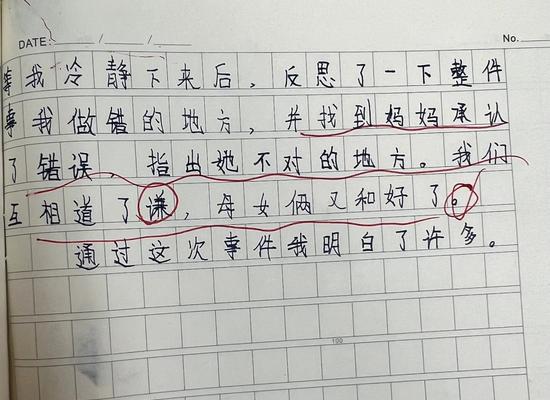 DATE: / /
No.
等我冷静下来后，反思了一下整件
事我做错的地方，并找到妈妈承认
了错误 指出她不对的地方。我们
互相道了谦，母女俩又和好了。
通过这次事件我明白了许多。
100